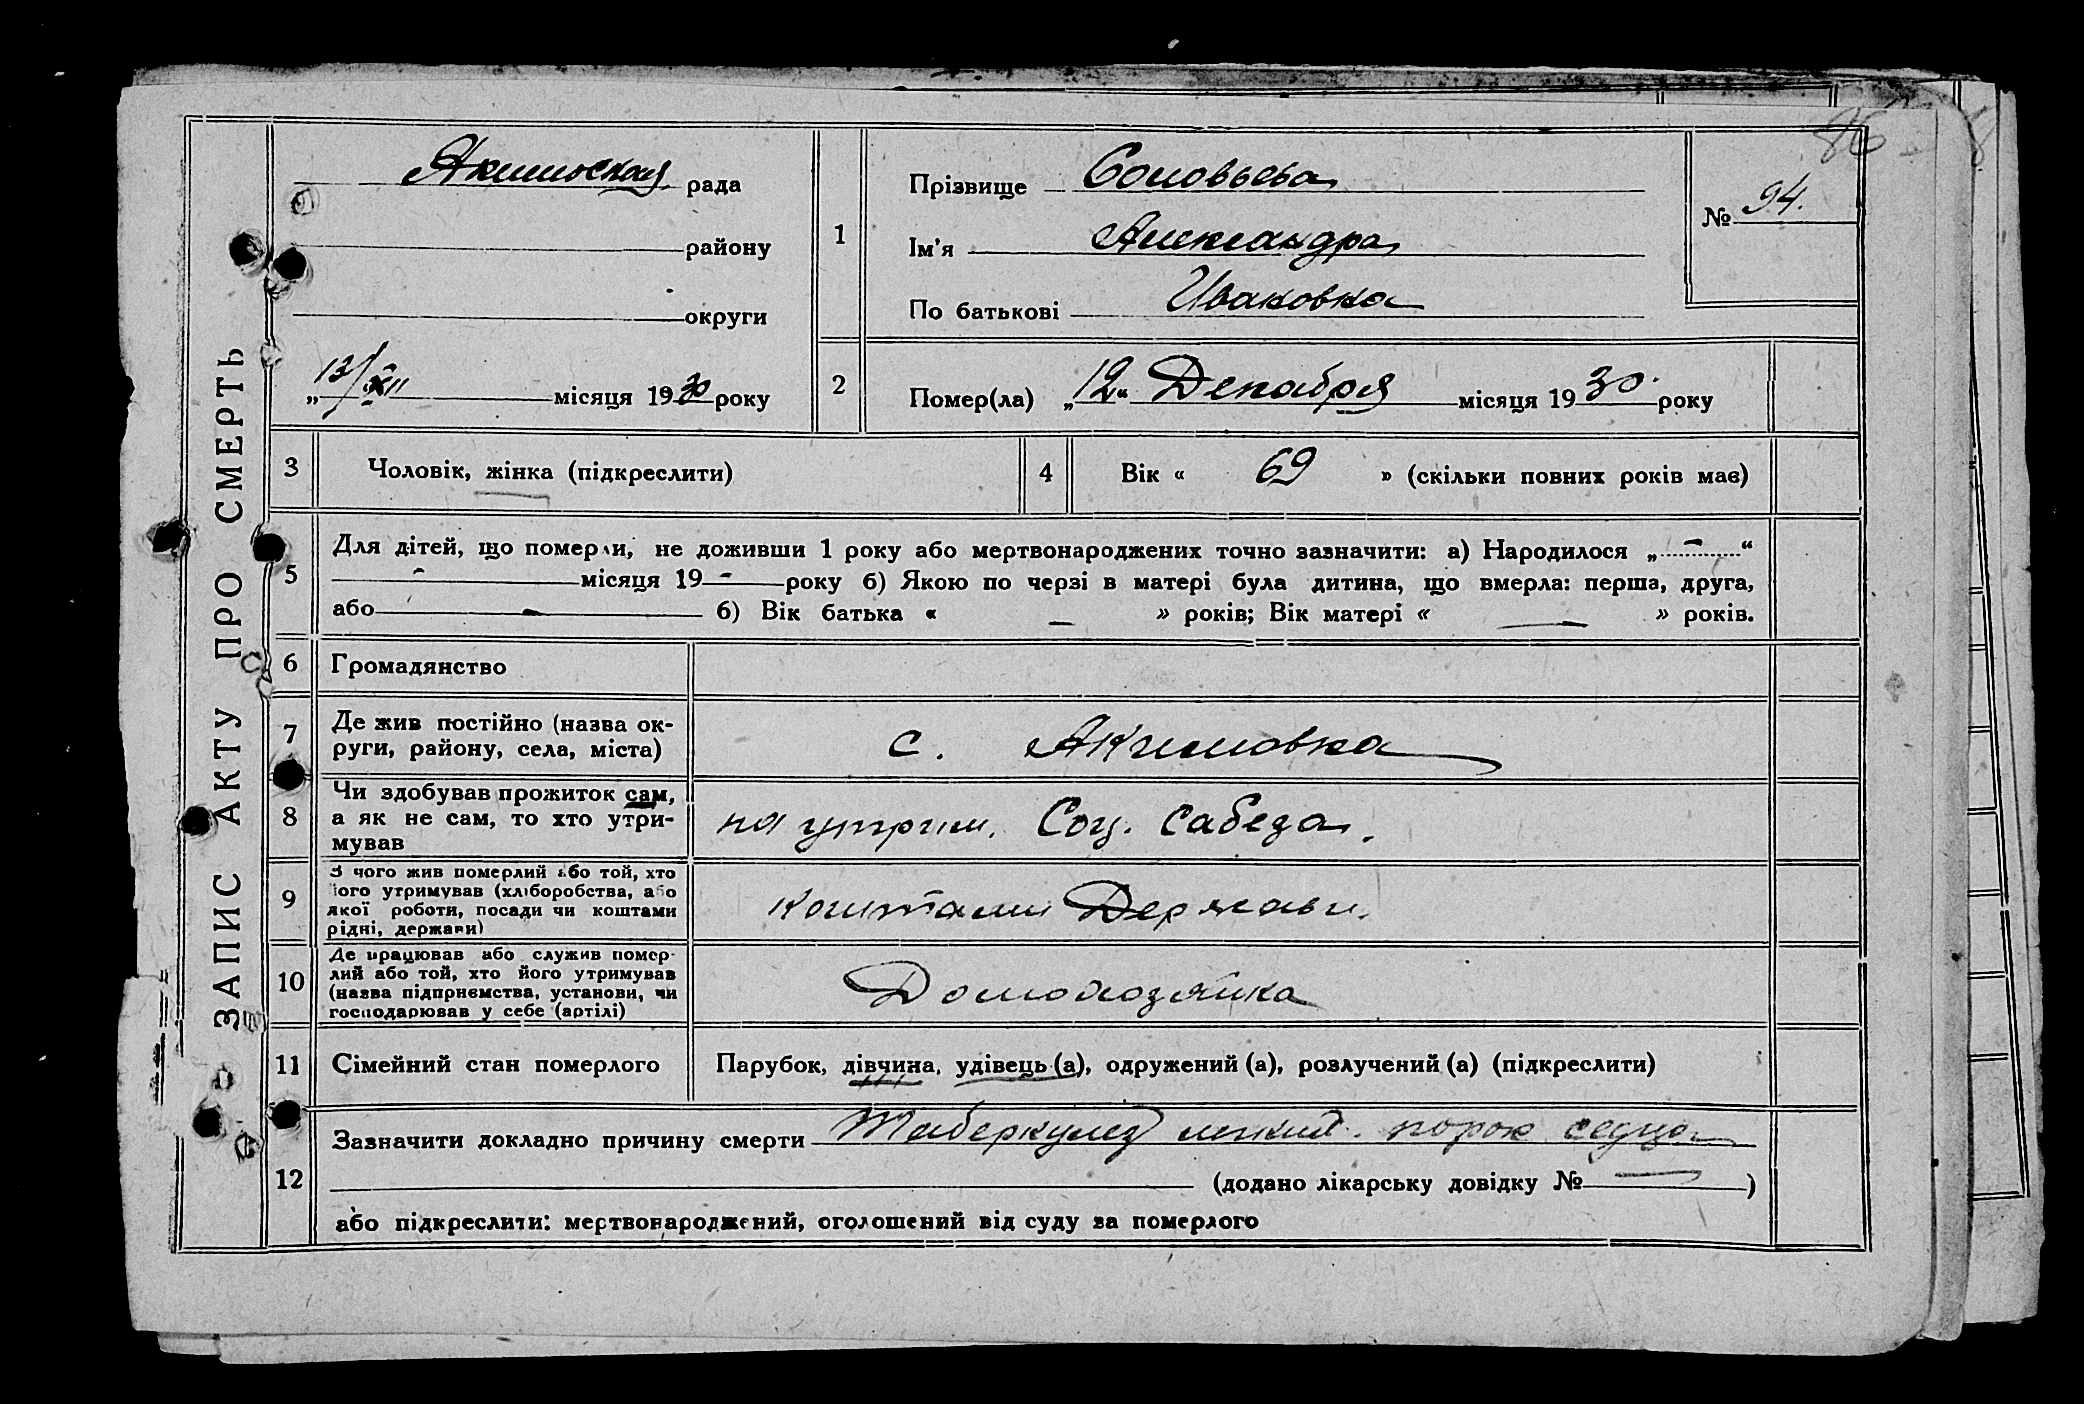 86
ЗАПИС АКТУ ПРО СМЕРТЬ
рада
району
округи
"13/XII місяця 1930 року
1
Прізвище Соловьева
Ім'я Александра
По батькові Ивановна
№ 94.
2
Помер(ла) „12“ Декабря місяця 1930 року
3
Чоловік, жінка (підкреслити)
4
Вік « 69 » (скільки повних років має)
5
Для дітей, що померли, не доживши 1 року або мертвонароджених точно зазначити: а) Народилося „ – “
- місяця 19 - року б) Якою по черзі в матері була дитина, що вмерла: перша, друга,
або - б) Вік батька « – » років; Вік матері « — » років.
6
Громадянство
7
Де жив постійно (назва ок-
руги, району, села, міста)
с. Акимовка
8
Чи здобував прожиток сам,
а як не сам, то хто утри-
мував
на утрим. Соц. Сабеза.
9
З чого жив померлий або той, хто
його утримував (хліборобства, або
якої роботи, посади чи коштами
рідні, держави)
коштами Держави.
10
Де працював або служив помер-
лий або той, хто його утримував
(назва підприємства, установи, чи
господарював у себе (артілі)
Домохозяйка
11
Сімейний стан померлого
Парубок, дівчина, удівець (а), одружений (а), розлучений (а) (підкреслити)
12
Зазначити докладно причину смерти Туберкулез легких. порок
(додано лікарську довідку № — )
або підкреслити: мертвонароджений, оголошений від суду за померлого